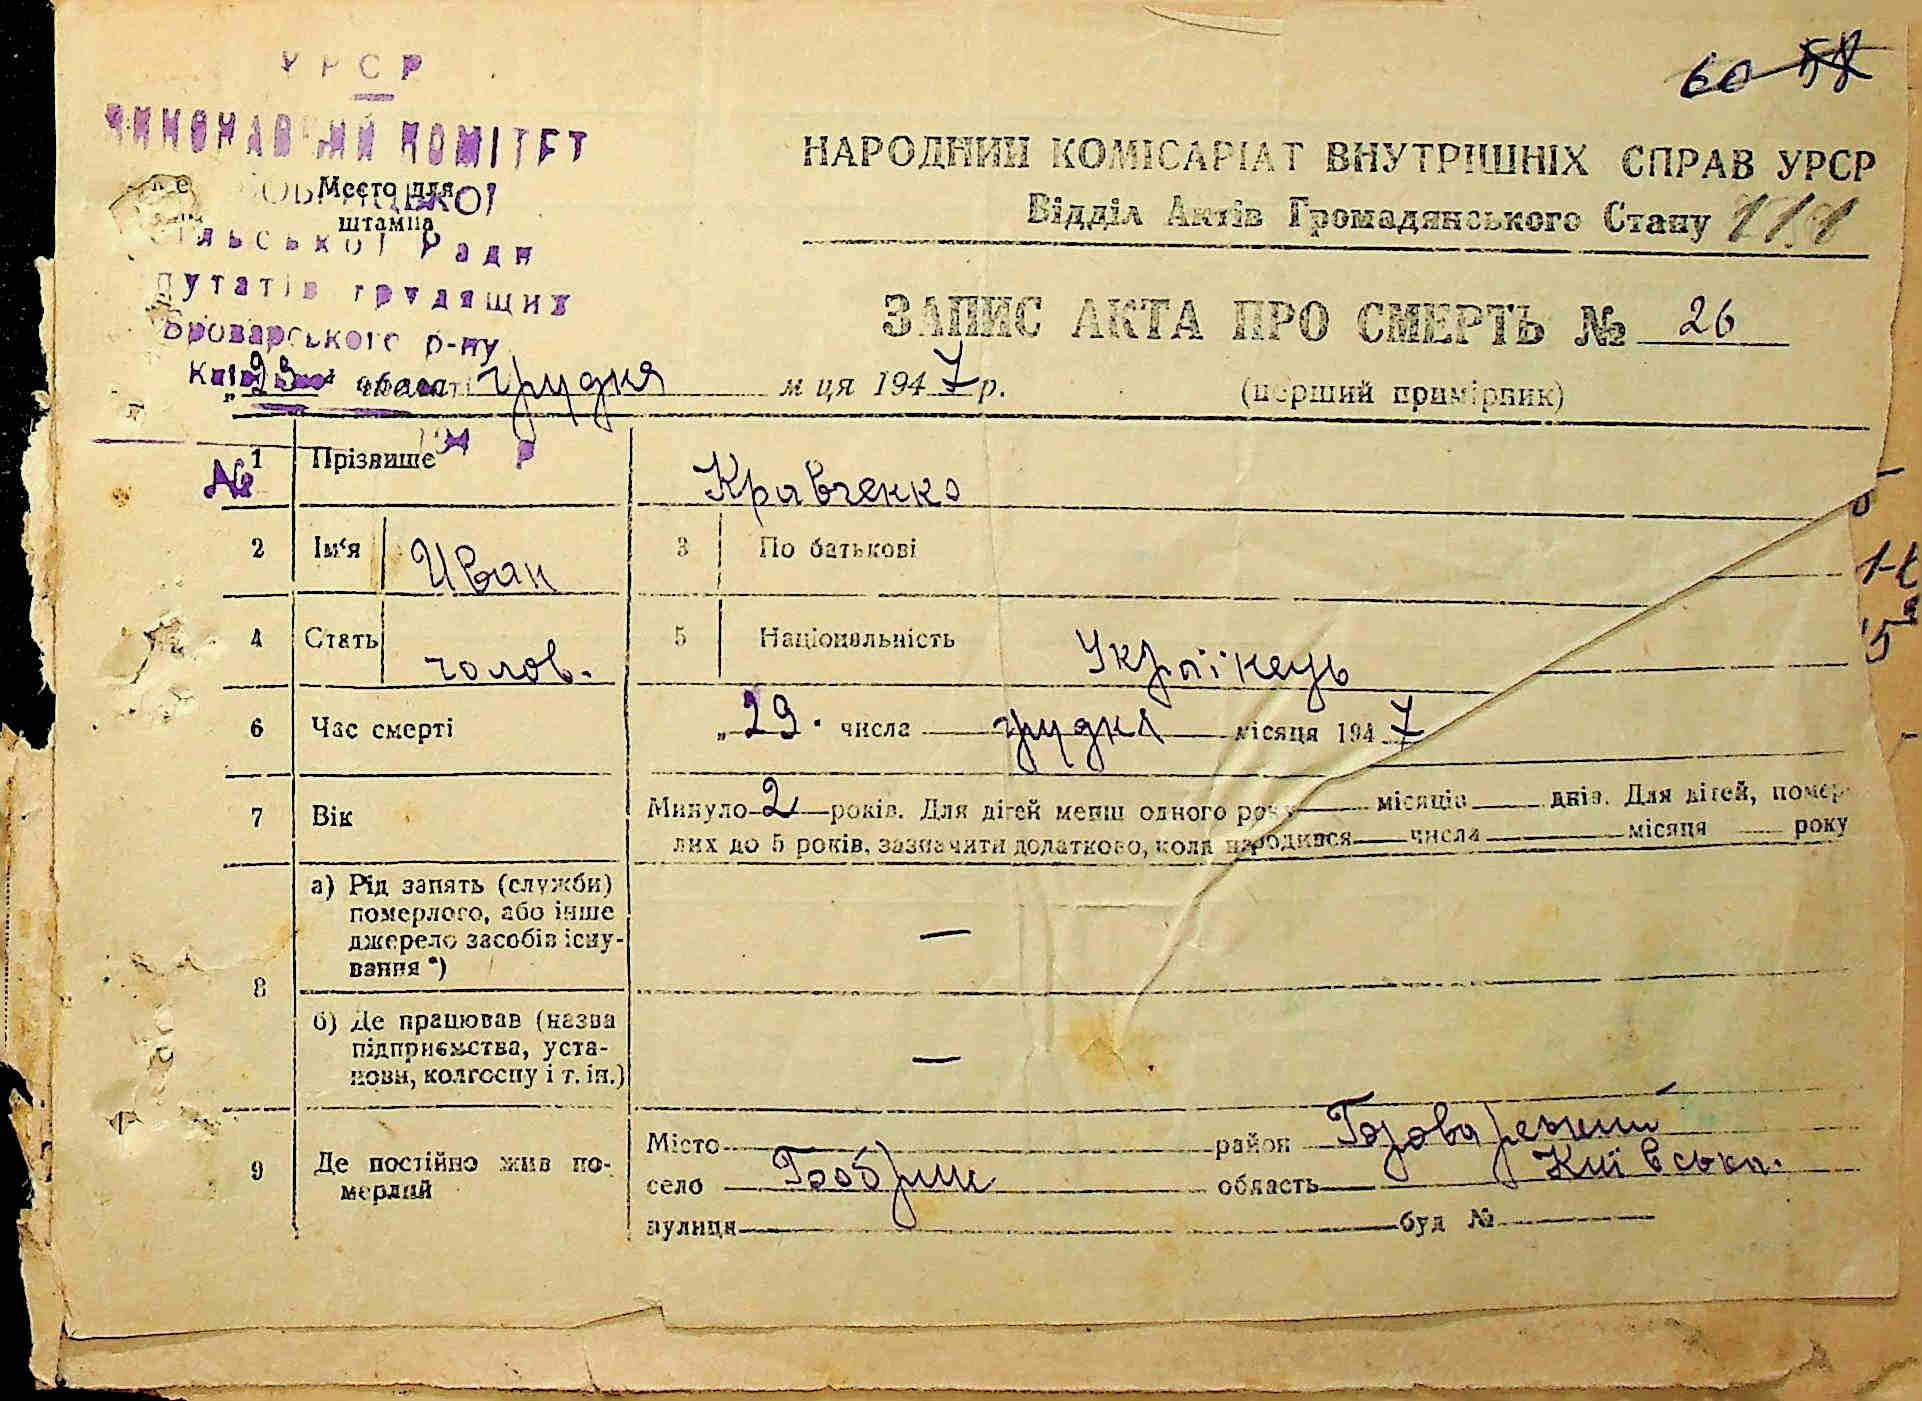 60 58
УРСР
ВИКОНАВЧИЙ КОМІТЕТ
Место для
штампа
сільської Ради
депутатів трудящих
Броварського р-ну
Київської області
194 р
№
НАРОДНИЙ КОМІСАРІАТ ВНУТРІШНІХ СПРАВ УРСР
Відділ Актів Громадянського Стану
ЗАПИС АКТА ПРО СМЕРТЬ № 26
„29 грудня м ця 1947 р.
(перший примірник)
1 Прізвище Кравченко
2 Ім‘я Иван 3 По батькові
4 Стать чолов. 5 Національність Українець
6 Час смерті „29. числа грудня місяця 1947
7 Вік Минуло 2 років. Для дітей менш одного року місяців днів. Для дітей, помер-
лих до 5 років, зазначити додатково, коли народився числа місяця року
8 а) Рід занять (служби)
померлого, або інше
джерело засобів існу-
вання *) —
б) Де працював (назва
підприємства, уста-
нови, колгоспу і т. ін.) —
9 Де постійно жив по-
мерлий
Місто район Броварський
село Бобрик область Київська.
вулиця буд №